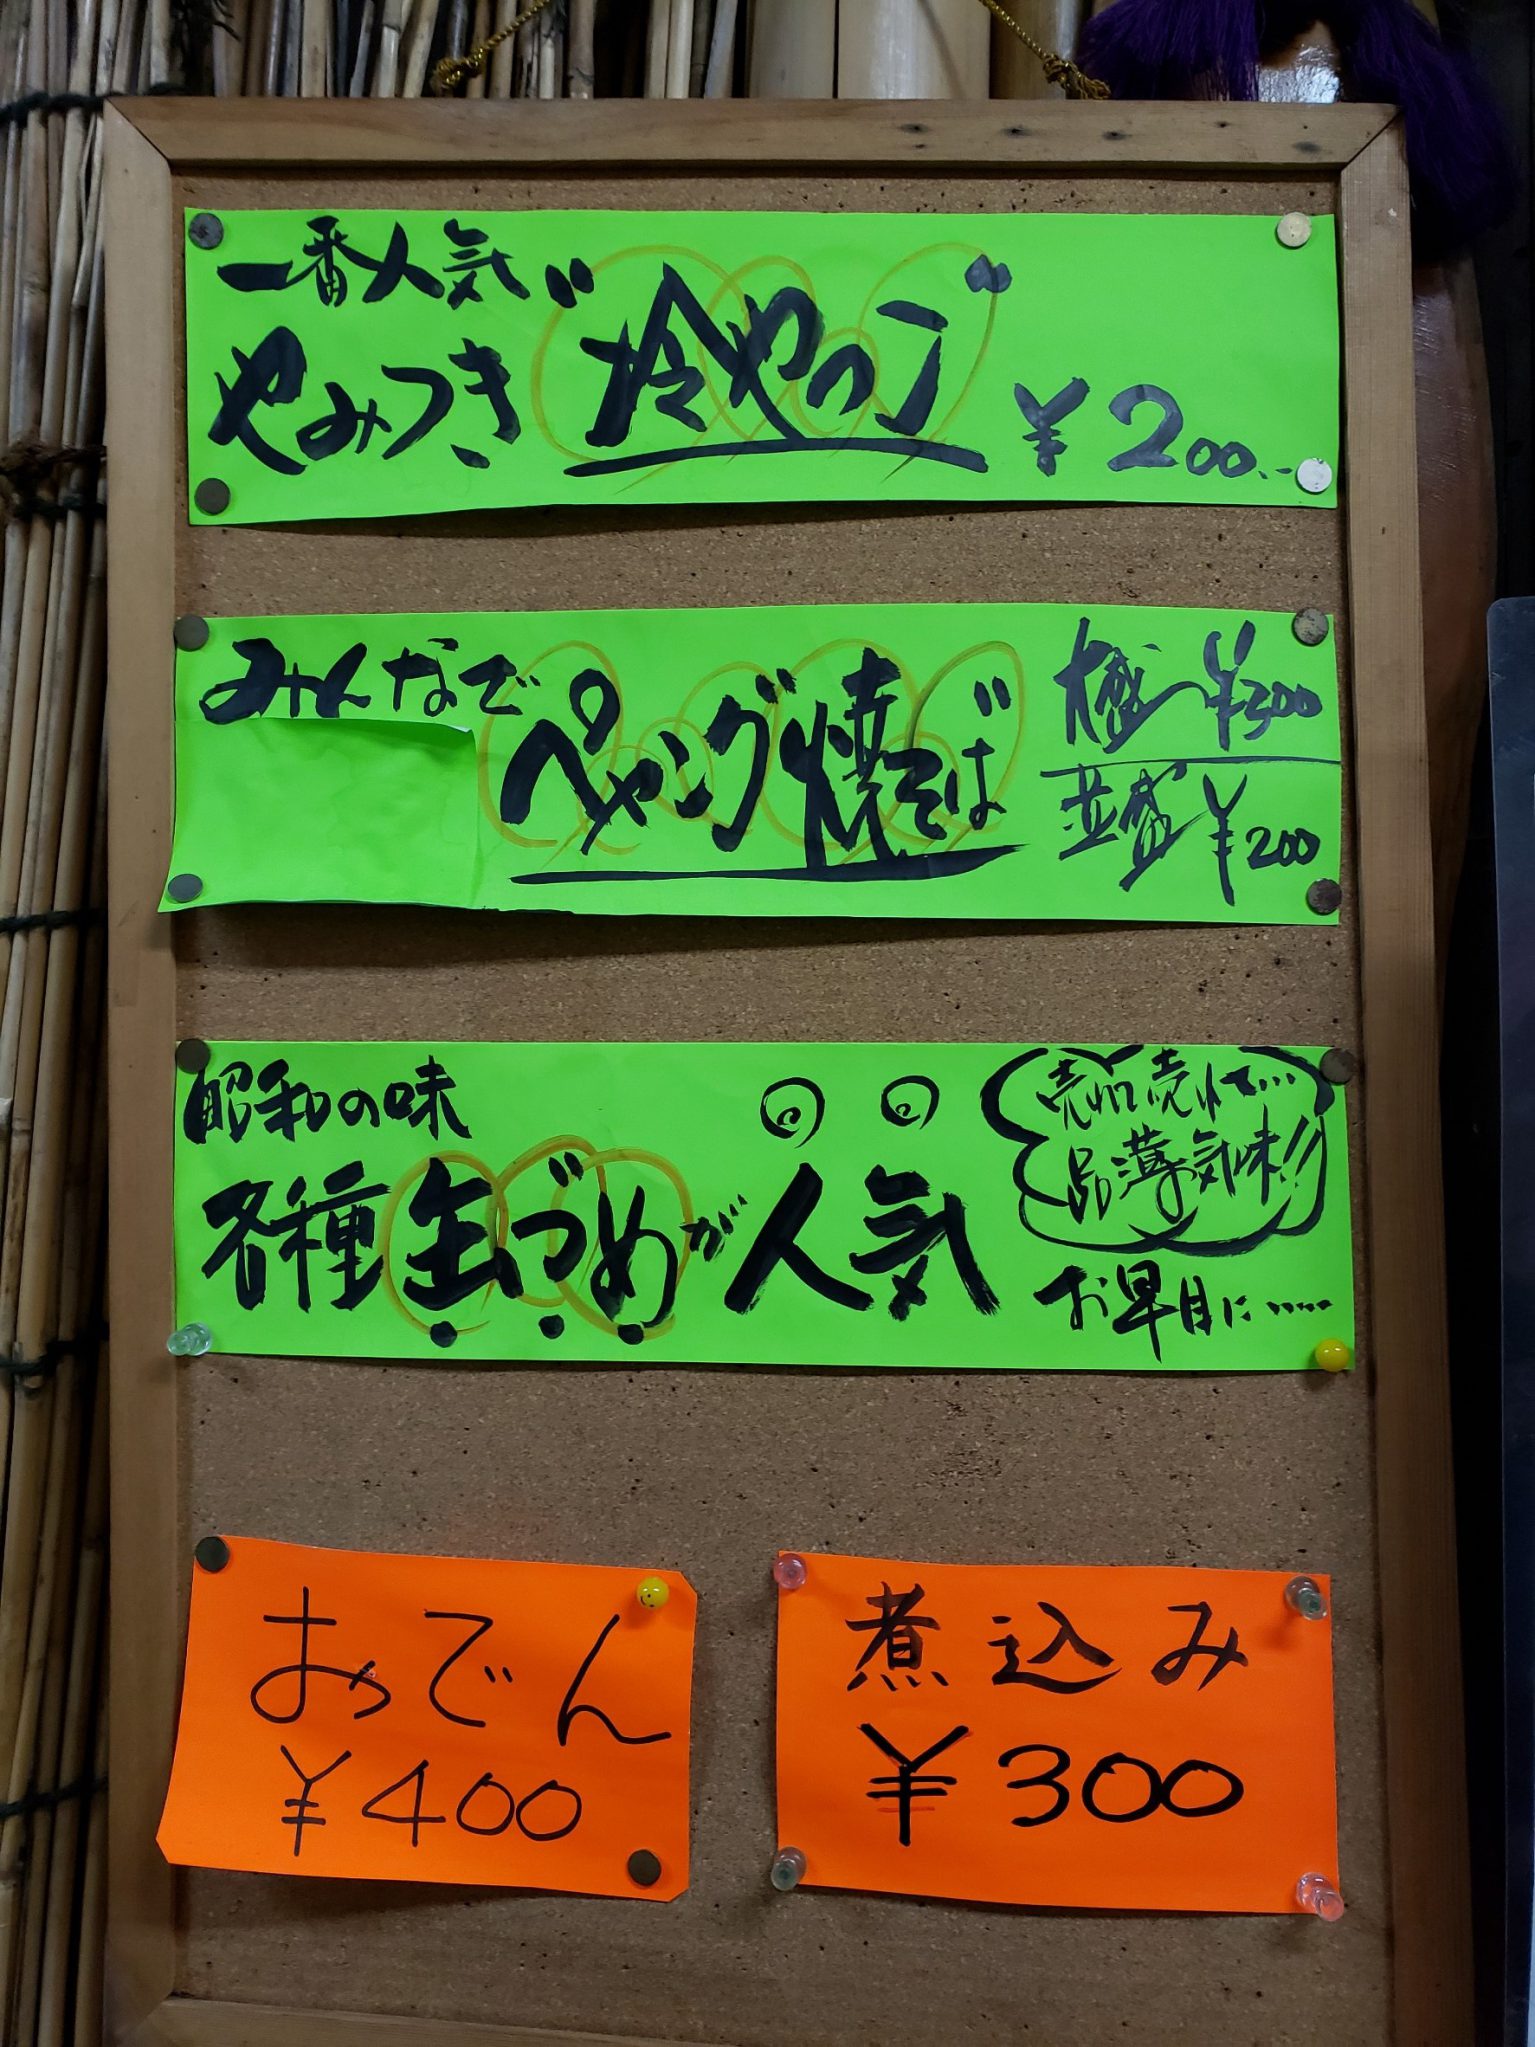 一番人気
やみつき "冷やっこ" ¥200.-
みんなで
ペヤング焼そば
大盛 ¥300
並盛 ¥200
昭和の味
各種缶づめが人気
売れて売れて...
品薄気味!!
お早目に……
おでん
¥400
煮込み
¥300